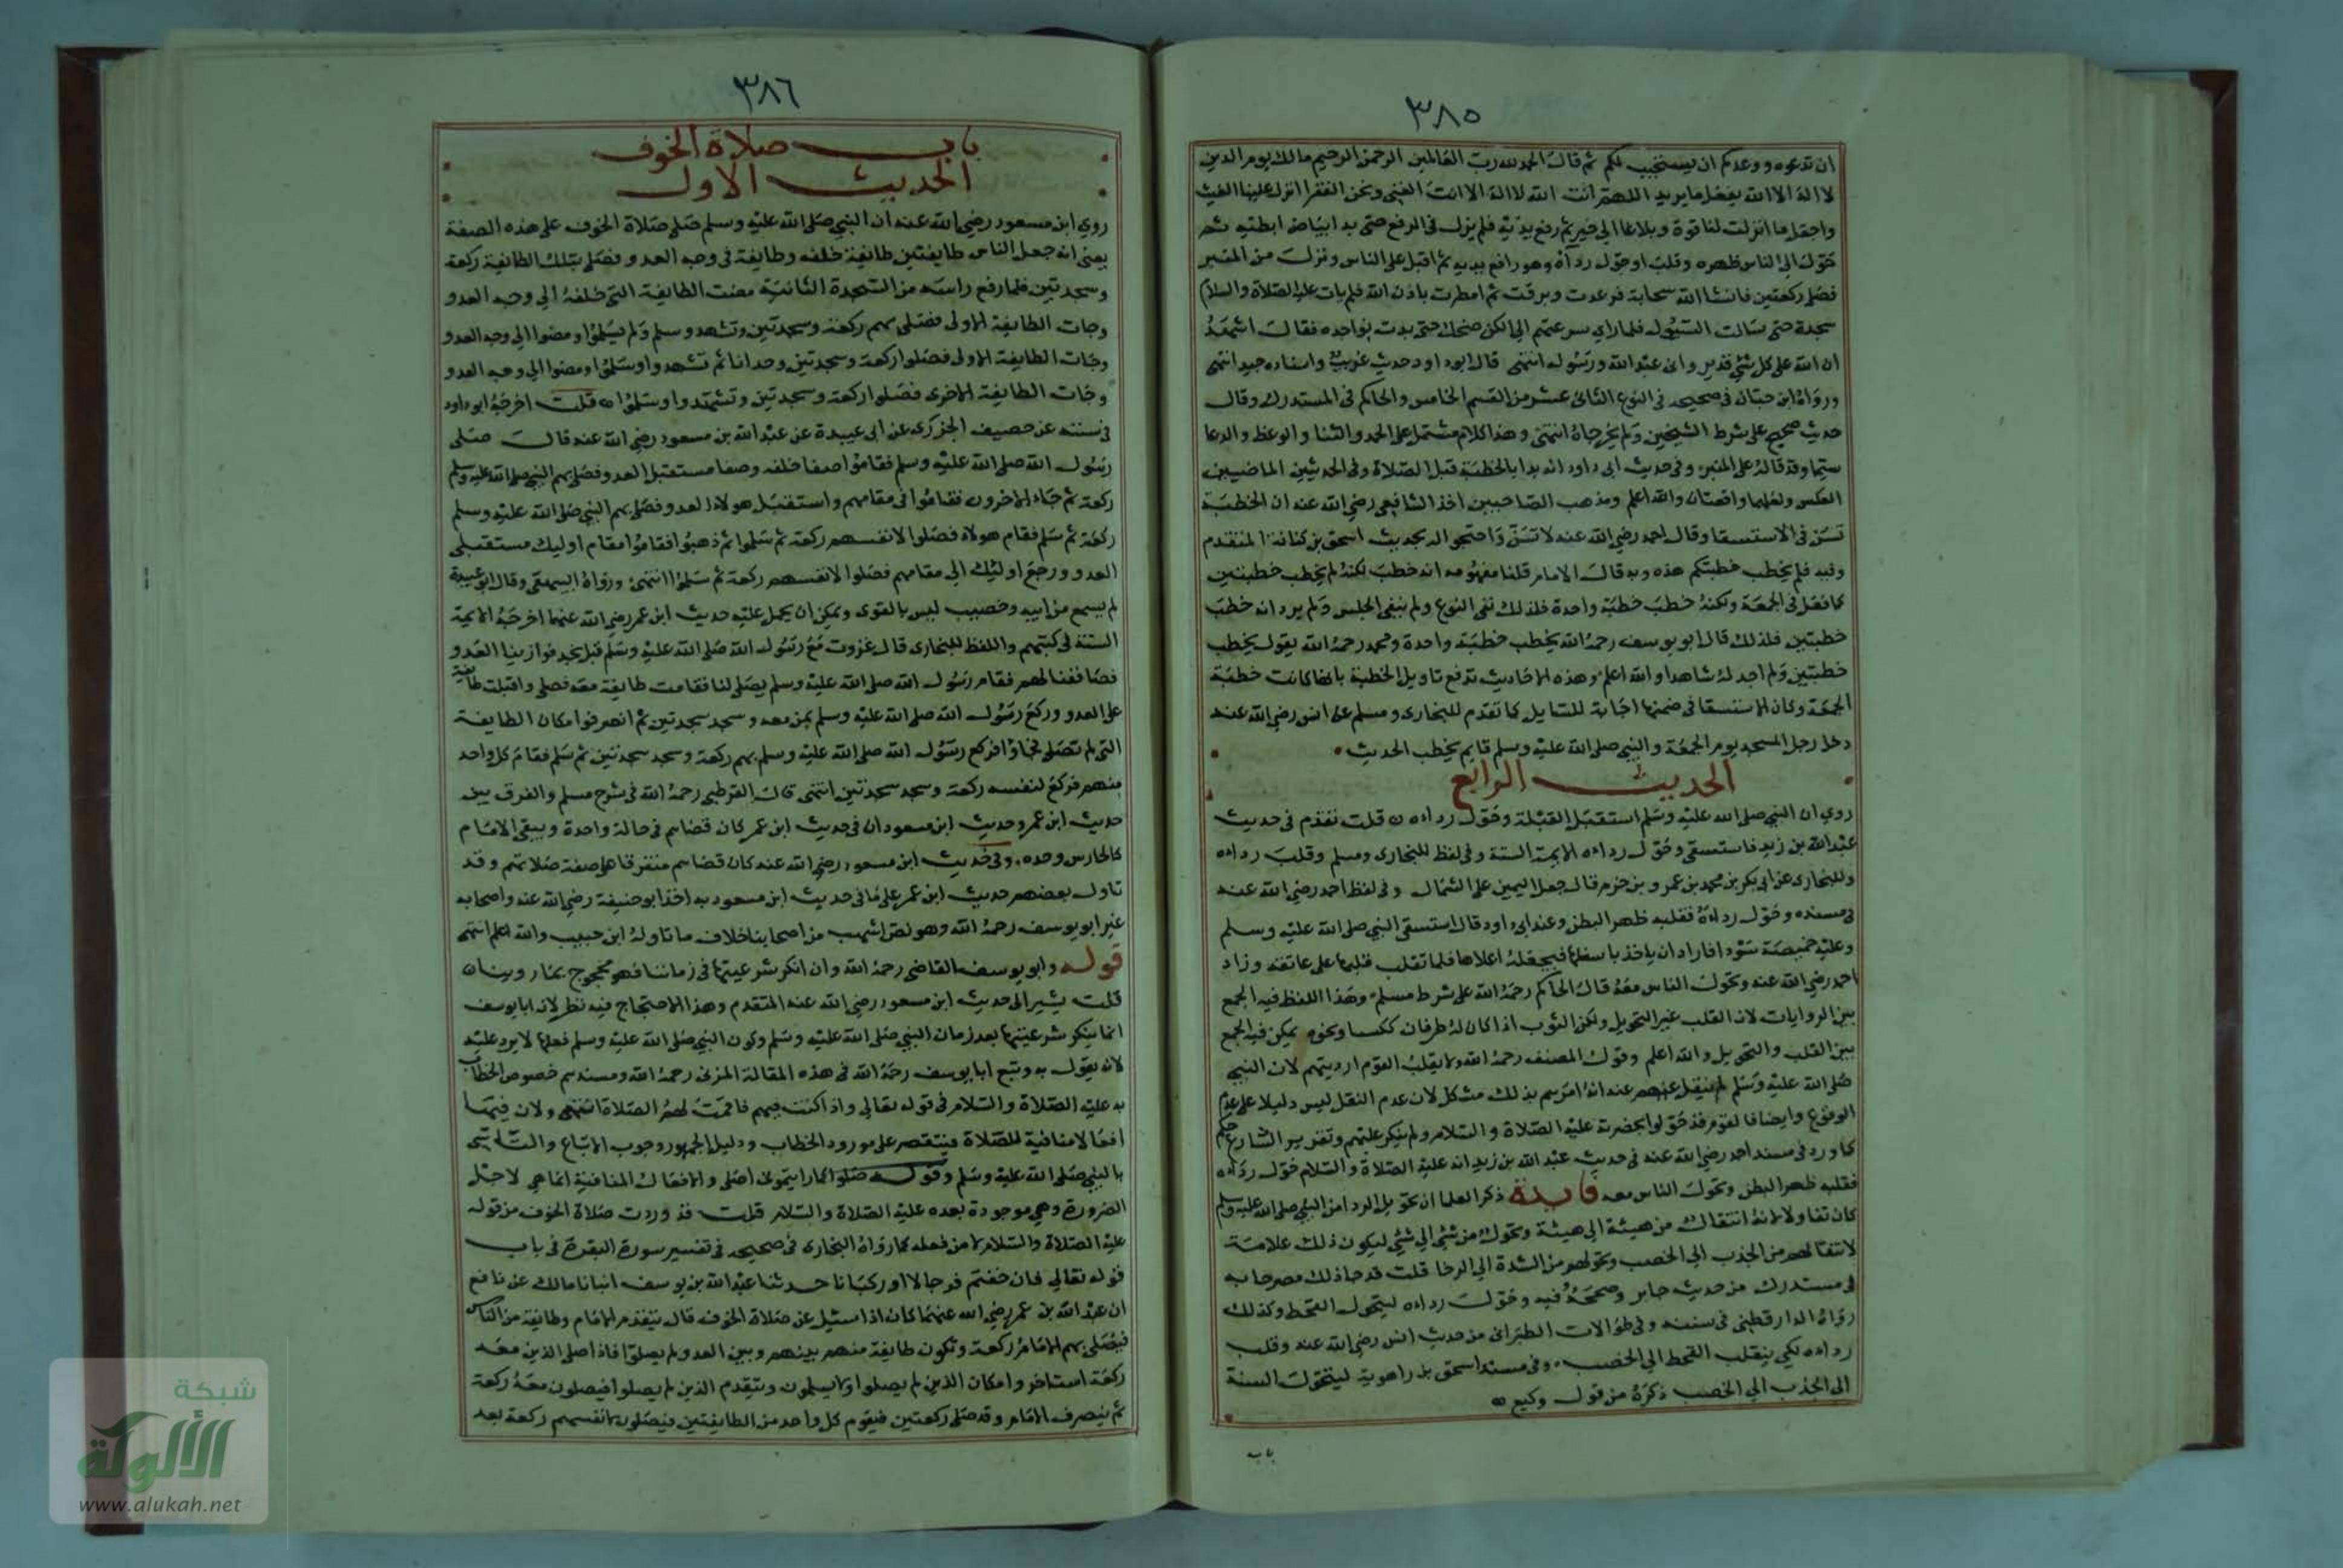 ٣٨٥
ان تدعوه ووعدكم ان يستجيب لكم ثم قال الحمد لله رب العالمين الرحمن الرحيم مالك يوم الدين
لا اله الا الله يفعل ما يريد اللهم انت الله لا اله الا انت الغني ونحن الفقرا انزل علينا الغيث
واجعل ما انزلت لنا قوة وبلاغا الي خير ثم رفع يديه فلم يزل في الرفع حتى بدا بياض ابطيه ثم
حول الي الناس ظهره وقلب او حول رداه وهو رافع يديه ثم اقبل على الناس ونزل من المنبر
فصلى ركعتين فانشا الله سحابة فرعدت وبرقت ثم امطرت باذن الله فلم يات عليه الصلاة والسلام
مسجده حتى سالت السيول فلما راي سرعتهم الي الكن ضحك حتى بدت نواجده فقال اشهد
ان الله على كل شي قدير وانى عبد الله ورسوله انتهى قال ابو داود حديث غريب واسناده جيد انتهى
ورواه ابن حبان في صحيحه في النوع الثانى عشر من القسم الخامس والحاكم في المستدرك وقال
حديث صحيح على شرط الشيخين ولم يخرجاه انتهى وهذا كلام مشتمل على الحمد والثنا والوعظ والدعا
سيما وقد قاله على المنبر وفي حديث ابى داود انه بدا بالخطبة قبل الصلاة وفي الحديثين الماضيين
العكس ولعلهما واقعتان والله اعلم ومذهب الصاحبين اخذ الشافعي رضي الله عنه ان الخطبة
تسن في الاستسقا وقال احمد رضي الله عنه لا تسن واحتجوا له بحديث اسحق بن كنانة المتقدم
وفيه فلم يخطب خطبتكم هذه وبه قال الامام قلنا مفهومه انه خطب لكنه لم يخطب خطبتين
كما فعل في الجمعة ولكنه خطب خطبة واحدة فلذلك نفى النوع ولم ينفى الجنس ولم يرد انه خطب
خطبتين فلذلك قال ابو يوسف رحمه الله يخطب خطبة واحدة ومحمد رحمه الله يقول يخطب
خطبتين ولم اجد له شاهدا والله اعلم وهذه الاحاديث تدفع تاويل الخطبة بانها كانت خطبة
الجمعة وكان الاستسقا في ضمنها اجابة للسايل كما تقدم للبخارى ومسلم عن انس رضي الله عنه
دخل رجل المسجد يوم الجمعة والنبي صلى الله عليه وسلم قايم يخطب الحديث
الحديث الرابع
روي ان النبي صلى الله عليه وسلم استقبل القبلة وحول رداءه قلت تقدم في حديث
عبد الله بن زيد فاستسقى وحول رداءه الايمة الستة وفي لفظ للبخارى ومسلم وقلب رداءه
وللبخارى عن ابى بكر بن محمد بن عمرو بن حزم قال جعل اليمين على الشمال وفي لفظ احمد رضي الله عنه
في مسنده وحول رداءه فقلبه ظهر البطن وعند ابى داود قال استسقى النبي صلى الله عليه وسلم
وعليه خميصة سودا فاراد ان ياخذ باسفلها فيجعله اعلاها فلما ثقلت قلبها على عاتقه وزاد
احمد رضي الله عنه وتحول الناس معه قال الحاكم رحمه الله على شرط مسلم وهذا اللفظ فيه الجمع
بين الروايات لان القلب غير التحويل ولكن الثوب اذا كان له طرفان ككسا ونحوه يمكن فيه الجمع
بين القلب والتحويل والله اعلم وقول المصنف رحمه الله ولا يقلب القوم ارديتهم لان النبي
صلى الله عليه وسلم لم ينقل عنه انه امرهم بذلك مشكل لان عدم النقل ليس دليلا على عدم
الوقوع وايضا فالقوم قد حولوا بحضرته عليه الصلاة والسلام ولم ينكر عليهم وتقرير الشارع حكم
كما ورد في مسند احمد رضي الله عنه في حديث عبد الله بن زيد انه عليه الصلاة والسلام حول رداءه
فقلبه ظهر البطن وتحول الناس معه فايدة ذكر العلما ان تحويل الردا من النبي صلى الله عليه وسلم
كان تفاولا لانه انتقال من هيئة الي هيئة وتحول من شي الي شي ليكون ذلك علامة
لانتقالهم من الجدب الي الخصب وتحولهم من الشدة الي الرخا قلت قد جا ذلك مصرحا به
في مستدرك من حديث جابر وصححه فيه وحول رداءه ليتحول القحط وكذلك
رواه الدارقطني في سننه وفي طوالات الطبرانى من حديث انس رضي الله عنه وقلب
رداءه لكي ينقلب القحط الي الخصب وفي مسند اسحق بن راهوية ليتحول السنة
الى الجدب الي الخصب ذكره من قول وكيع
باب
٣٨٦
باب صلاة الخوف
الحديث الاول
روي ابن مسعود رضي الله عنه ان النبي صلى الله عليه وسلم صلى صلاة الخوف على هذه الصفة
يعنى انه جعل الناس طايفتين طايفة خلفه وطايفة في وجه العدو فصلى بتلك الطايفة ركعة
وسجدتين فلما رفع راسه من السجدة الثانية مضت الطايفة التي خلفه الي وجه العدو
وجات الطايفة الاولى فصلى بهم ركعة وسجدتين وتشهد وسلم ولم يسلموا ومضوا الي وجه العدو
وجات الطايفة الاولى فصلوا ركعة وسجدتين وحدانا ثم تشهدوا وسلموا ومضوا الي وجه العدو
وجات الطايفة الاخرى فصلوا ركعة وسجدتين وتشهدوا وسلموا قلت اخرجه ابو داود
في سننه عن حصيف الجزرى عن ابى عبيدة عن عبد الله بن مسعود رضي الله عنه قال صلى
رسول الله صلى الله عليه وسلم فقاموا صفا خلفه وصفا مستقبل العدو فصلى بهم النبي صلى الله عليه وسلم
ركعة ثم جاء الاخرون فقاموا في مقامهم واستقبل هولاء العدو فصلى بهم النبي صلى الله عليه وسلم
ركعة ثم سلم فقام هولاء فصلوا لانفسهم ركعة ثم سلموا ثم ذهبوا فقاموا مقام اوليك مستقبلى
العدو ورجع اوليك الي مقامهم فصلوا لانفسهم ركعة ثم سلموا انتهى ورواه البيهقى وقال ابو عبيدة
لم يسمع من ابيه وخصيب ليس بالقوى ويمكن ان يحمل عليه حديث ابن عمر رضي الله عنهما اخرجه الايمة
الستة في كتبهم واللفظ للبخارى قال غزوت مع رسول الله صلى الله عليه وسلم قبل نجد فوازينا العدو
فصاففنا لهم فقام رسول الله صلى الله عليه وسلم يصلى لنا فقامت طايفة معه فصلى واقبلت طايفة
على العدو وركع رسول الله صلى الله عليه وسلم بمن معه وسجد سجدتين ثم انصرفوا مكان الطايفة
التي لم تصلى فجاؤا فركع رسول الله صلى الله عليه وسلم بهم ركعة وسجد سجدتين ثم سلم فقام كل واحد
منهم فركع لنفسه ركعة وسجد سجدتين انتهى قال القرطبى رحمه الله في شرح مسلم والفرق بين
حديث ابن عمر وحديث ابن مسعود ان في حديث ابن عمر كان قضاهم في حالة واحدة ويبقى الامام
كالحارس وحده وفي حديث ابن مسعود رضي الله عنه كان قضاهم متفرقا على صفة صلاتهم وقد
تاول بعضهم حديث ابن عمر على ما في حديث ابن مسعود به اخذ ابو حنيفة رضي الله عنه واصحابه
غير ابو يوسف رحمه الله وهو نص اشهب من اصحابنا خلاف ما تاوله ابن حبيب والله اعلم انتهى
قوله وابو يوسف القاضي رحمه الله وان انكر شرعيتها في زماننا فهو محجوج بما روينا
قلت يشير الى حديث ابن مسعود رضي الله عنه المتقدم وهذا الاحتجاج فيه نظر لان ابا يوسف
انما ينكر شرعيتها بعد زمان النبي صلى الله عليه وسلم وكون النبي صلى الله عليه وسلم فعلها لا يرد عليه
لانه يقول به وتبع ابا يوسف رحمه الله في هذه المقالة المزنى رحمه الله ومستندهم خصوص الخطاب
به عليه الصلاة والسلام في قوله تعالي واذا كنت فيهم فاقمت لهم الصلاة انتهى ولان فيها
افعالا منافية للصلاة فيقتصر على مورود الخطاب ودليل الجمهور وجوب الاتباع والتاسى
بالنبي صلى الله عليه وسلم وقوله صلوا كما رايتمونى اصلى والافعال المنافية انما هي لاجل
الضرورة وهي موجودة بعده عليه الصلاة والسلام قلت قد وردت صلاة الخوف من قوله
عليه الصلاة والسلام لا من فعله كما رواه البخارى في صحيحه في تفسير سورة البقرة في باب
قوله تعالي فان خفتم فرجالا او ركبانا حدثنا عبد الله بن يوسف انبانا مالك عن نافع
ان عبد الله بن عمر رضي الله عنهما كان اذا سئيل عن صلاة الخوف قال يتقدم الامام وطايفة من الناس
فيصلى بهم الامام ركعة وتكون طايفة منهم بينهم وبين العدو لم يصلوا فاذا صلى الذين معه
ركعة استاخروا مكان الذين لم يصلوا ولا يسلمون ويتقدم الذين لم يصلوا فيصلون معه ركعة
ثم ينصرف الامام وقد صلى ركعتين فيقوم كل واحد من الطايفتين فيصلون لانفسهم ركعة بعد
شبكة
الألوكة
www.alukah.net